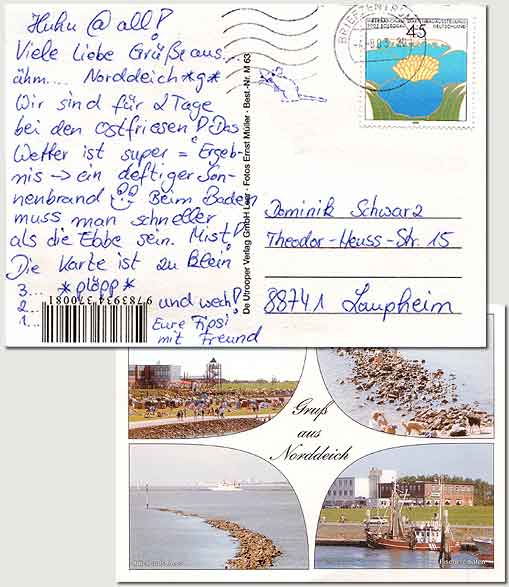 Huhu @ all!
Viele Liebe Grüße aus...
ähm.... Norddeich *g*
Wir sind für 2 Tage
bei den Ostfriesen! Das
Wetter ist super = Ergeb-
mis → ein deftiger Son-
nenbrand Beim Baden
muss man schneller
als die Ebbe sein. Mist!
Die Karte ist zu klein
3... *plöpp*
2... und weg!
1... Eure Fipsi
mit Freund
9783934370081
De Utrooper Verlag GmbH Leer · Fotos Ernst Müller · Best.-Nr. M 63
BRIEFZENTRUM
45
DEUTSCHLAND
Dominik Schwarz
Theodor-Heuss-Str. 15
88741 Laupheim
Gruß
aus
Norddeich